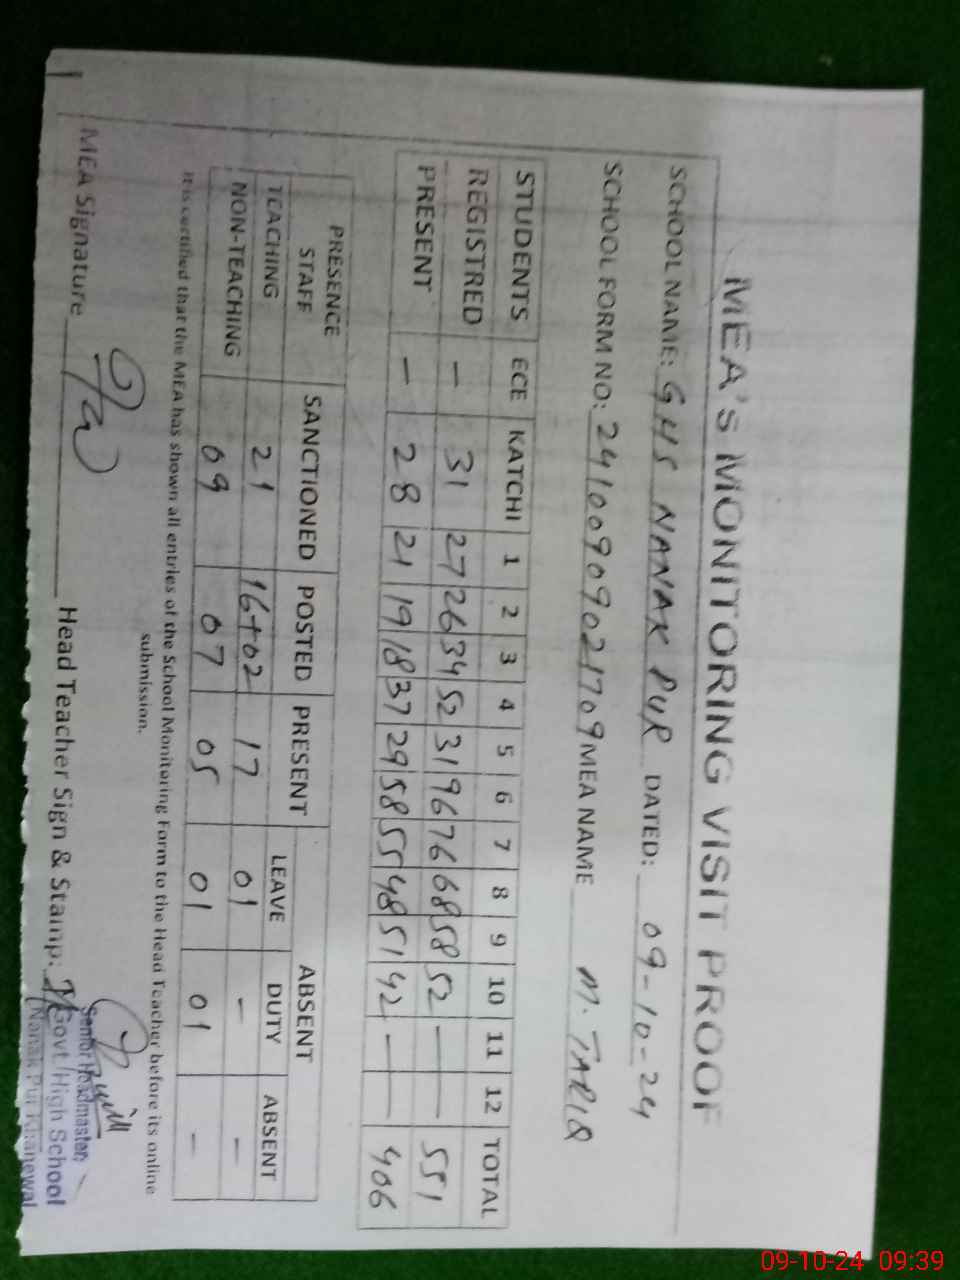 MEA'S MONITORING VISIT PROOF
SCHOOL NAME: GHS NANAK PUR DATED: 09-10-24
SCHOOL FORM NO: 24100909021709 MEA NAME M. TARIQ
STUDENTS ECE KATCHI 1 2 3 4 5 6 7 8 9 10 11 12 TOTAL
REGISTRED - 31 27 26 34 52 31 96 76 68 58 52 - - 551
PRESENT - 28 21 19 18 37 29 58 55 48 51 42 - - 406
PRESENCE STAFF SANCTIONED POSTED PRESENT ABSENT
LEAVE DUTY ABSENT
TEACHING 21 16+02 17 01 - -
NON-TEACHING 09 07 05 01 01 -
It is certified that the MEA has shown all entries of the School Monitoring Form to the Head Teacher before its online
submission.
MEA Signature Head Teacher Sign & Stamp:
Senior Headmaster
Govt. High School
Nanak Pur Khanewal
09-10-24 09:39